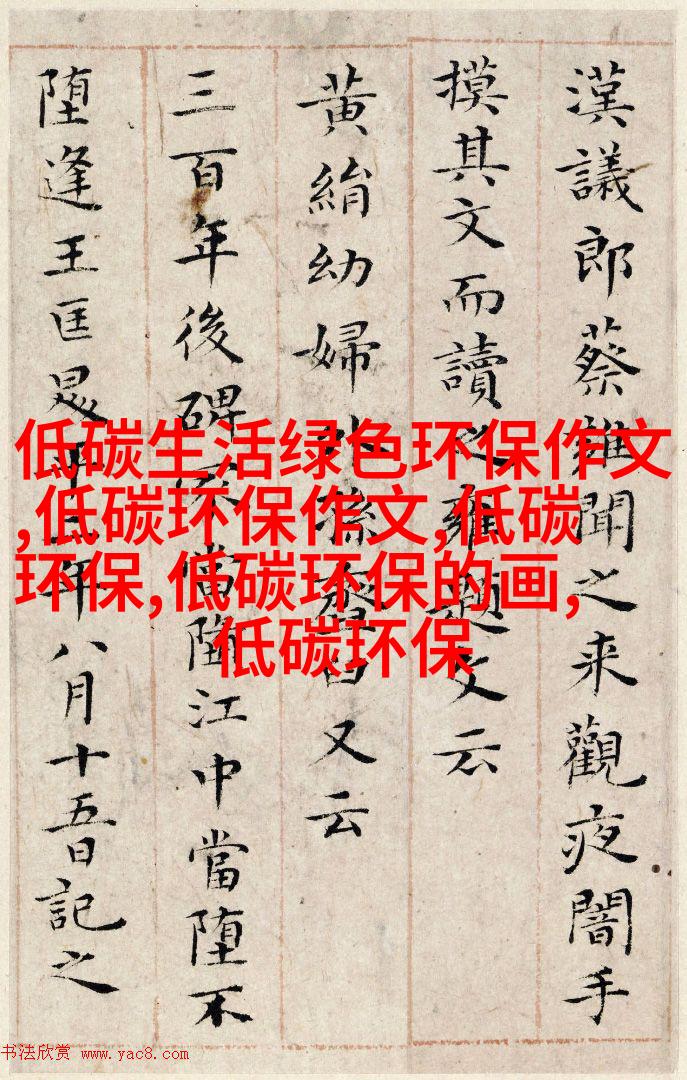 漢議郎蔡雍聞之来觀夜闇手
摸其文而讀之雍題文云
黃絹幼婦外孫韲臼又云
三百年後碑冢當堕江中當堕不
堕逢王匡二年八月十五日記之
低碳生活绿色环保作文
,低碳环保作文,低碳
环保,低碳环保的画,
低碳环保
书法欣赏 www.yac8.com